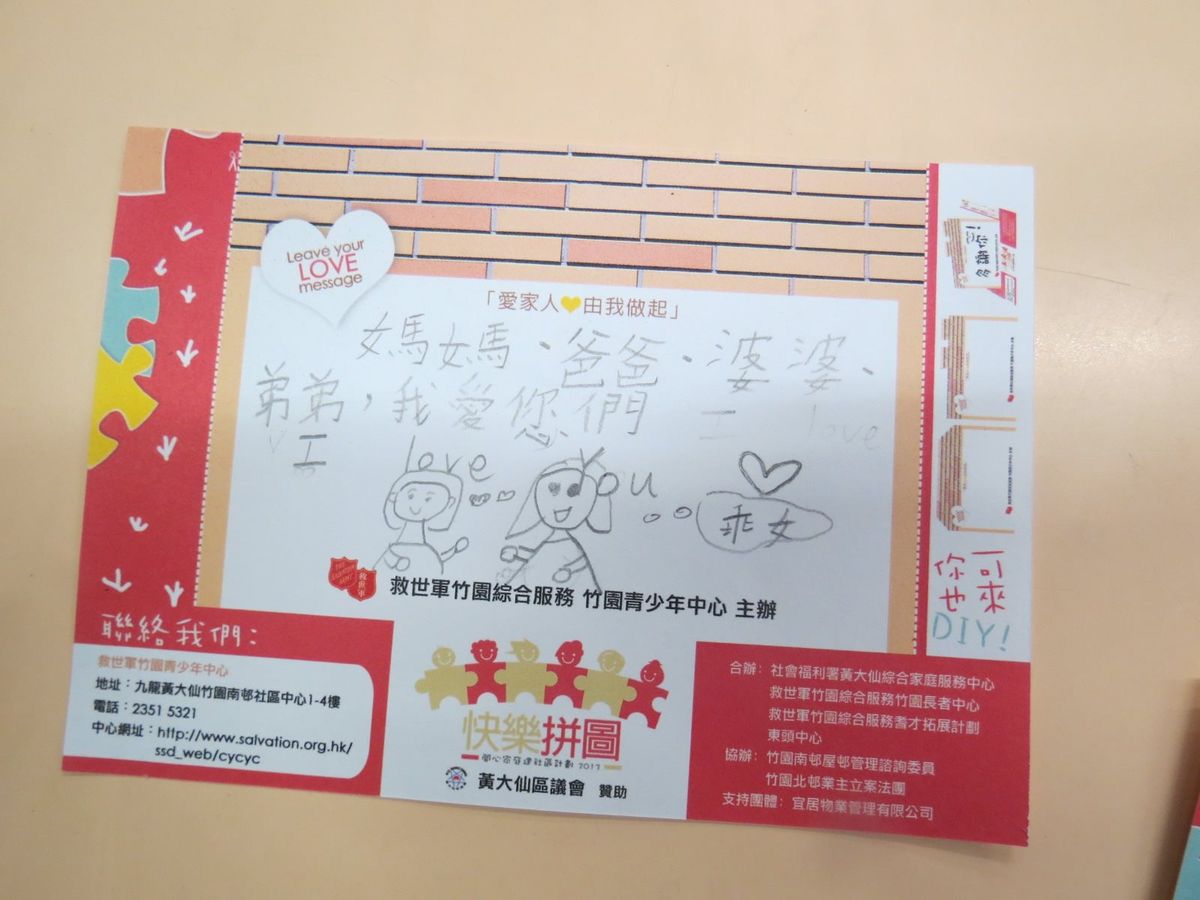 Leave your
LOVE
message
「愛家人由我做起」
媽媽、爸爸、婆婆、
弟弟,我愛您們
I love You
I love
乖女
救世軍
救世軍竹園綜合服務 竹園青少年中心 主辦
聯絡我們:
救世軍竹園青少年中心
地址:九龍黃大仙竹園南邨社區中心1-4樓
電話:2351 5321
中心網址:http://www.salvation.org.hk/
ssd_web/cycyc
快樂拼圖
開心家庭建社區計劃 2017
黃大仙區議會 贊助
合辦: 社會福利署黃大仙綜合家庭服務中心
救世軍竹園綜合服務竹園長者中心
救世軍竹園綜合服務耆才拓展計劃
東頭中心
協辦: 竹園南邨屋邨管理諮詢委員
竹園北邨業主立案法團
支持團體: 宜居物業管理有限公司
你可
也來
DIY!